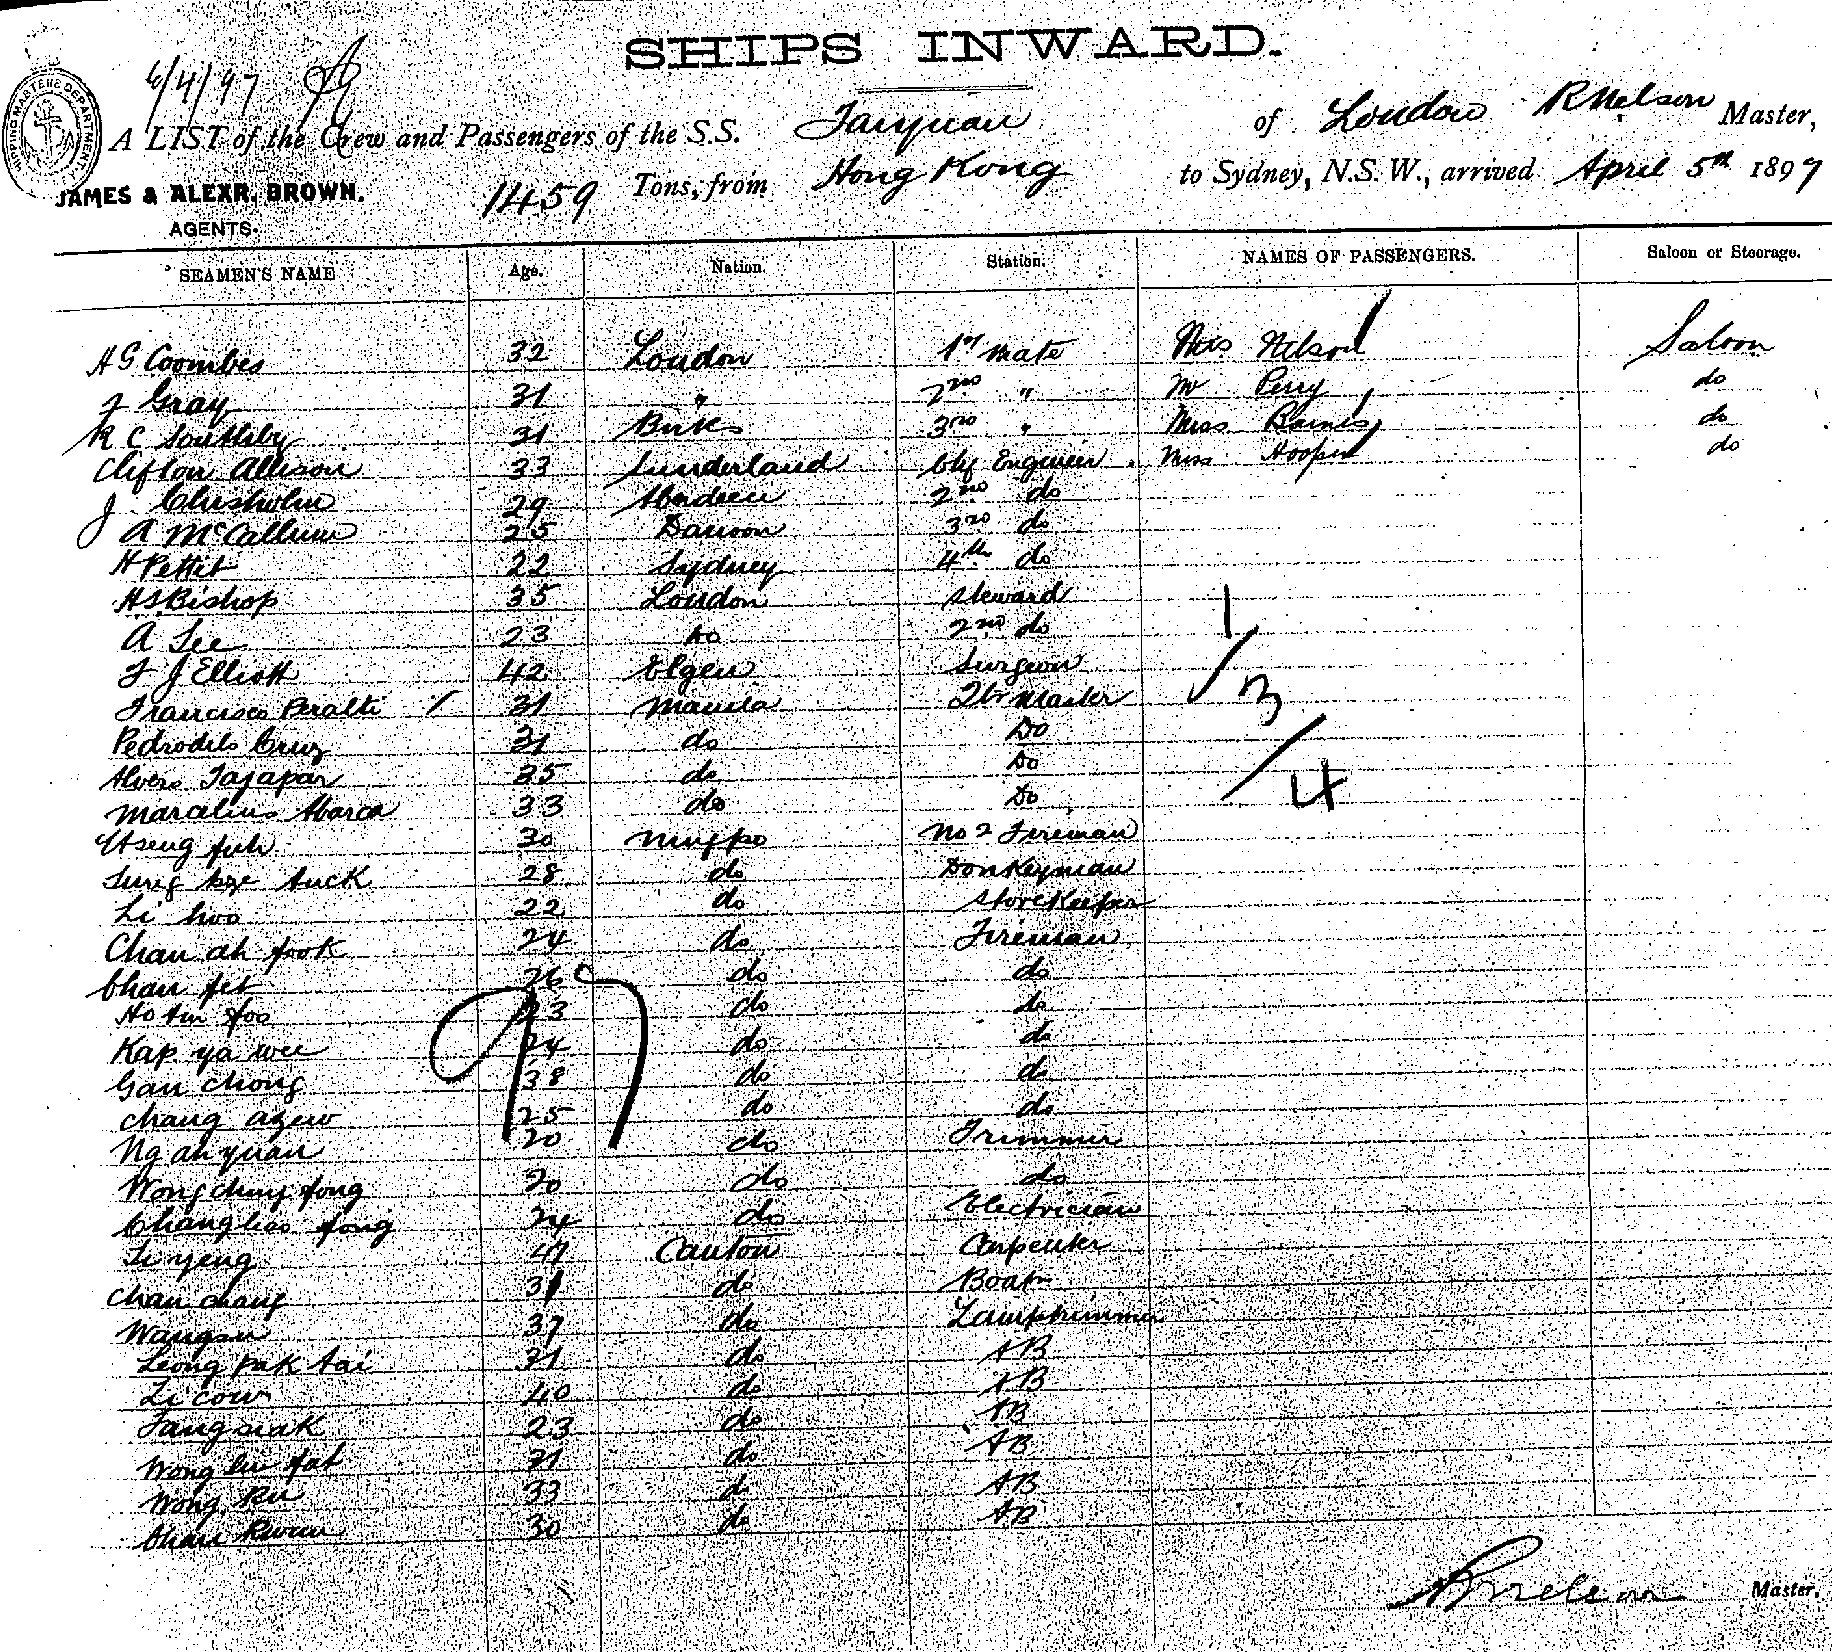 SHIPS INWARD.
6/4/97
SHIPPING MASTERS DEPARTMENT
A LIST of the Crew and Passengers of the S.S. Taiyuan of London R Nelson Master,
JAMES & ALEXR. BROWN, 1459 Tons, from Hong Kong to Sydney, N.S.W., arrived April 5th 1897
AGENTS.
SEAMEN'S NAME Age. Nation. Station. NAMES OF PASSENGERS. Saloon or Steerage.
H G Coombes 32 London 1st Mate Nelson Saloon
Gray 31 " 2nd " Mr Perry do
R C Southby 31 Bucks 3rd " Miss Baines do
Clifton Allison 33 Sunderland Chf Engineer Miss Hooper do
J Chisholm 29 Aberdeen 2nd do
A McCallum 25 Dunoon 3rd do
H Pettit 22 Sydney 4th do
H S Bishop 35 London Steward
A Lee 23 Do 2nd do
F J Elliott 42 Elgin Surgeon
Francisco Peralti 31 Manila Qtr Master
Pedrodels Cruz 31 do Do
Alvero Tajapar 35 do Do
Marcelius Abarca 33 do Do
1/3/4
Ytseng fuh 30 Ningpo No 2 Fireman
Tung kee tuck 28 do Donkeyman
Li hoo 22 do Storekeeper
Chan ah fook 24 do Fireman
Chan fet 26 do do
Ho tin foo 23 do do
Kap ya wee 24 do do
Gan chong 38 do do
97
Chang azew 25 do do
Ng ah yuan 20 do Trimmer
Wong chung fong 20 do do
Chang hao fong 24 do Electrician
Li yeng 47 Canton Carpenter
Chan chang 31 do Boatn
Wangsu 37 do Lamptrimmer
Leong pak tai 31 do AB
Li cow 40 do AB
Tang siak 23 do AB
Wong liu fat 31 do AB
Wong Ku 33 do AB
Chan Kwan 30 do AB
R Nelson Master.